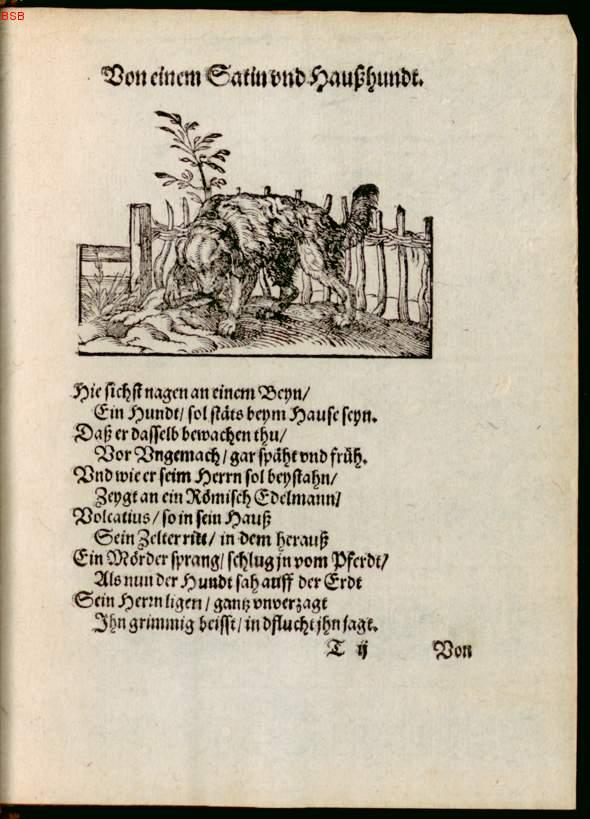 BSB
Von einem Satin vnd Haußhundt.
Hie sichst nagen an einem Beyn/
Ein Hundt/ sol stäts beym Hause seyn.
Daß er dasselb bewachen thu/
Vor Vngemach/ gar späht vnd früh.
Vnd wie er seim Herrn sol beystahn/
Zeygt an ein Römisch Edelmann/
Volcatius/ so in sein Hauß
Sein Zelter ritt/ in dem herauß
Ein Mörder sprang/ schlug jn vom Pferdt/
Als nun der Hundt sah auff der Erdt
Sein Herrn ligen/ gantz vnverzagt
Ihn grimmig beisst/ in dflucht jhn jagt.
T ij Von